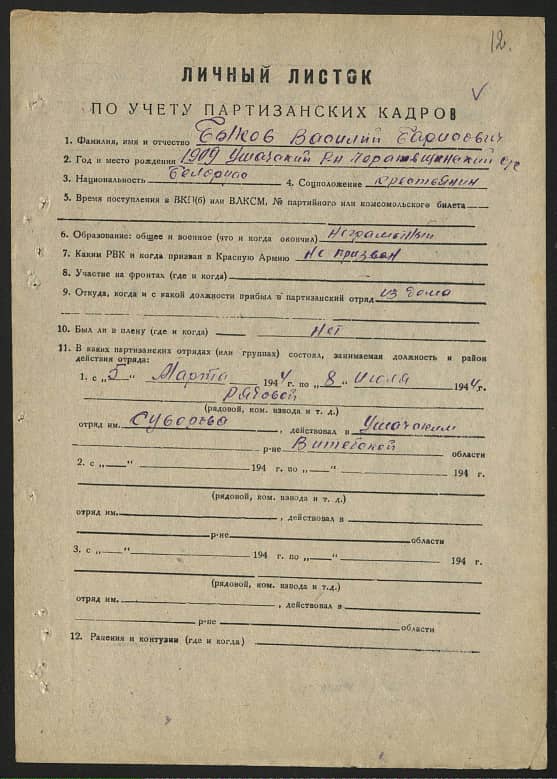 12.
ЛИЧНЫЙ ЛИСТОК
V
ПО УЧЕТУ ПАРТИЗАНСКИХ КАДРОВ
1. Фамилия, имя и отчество Быков Василий Борисович
2. Год и место рождения 1909 Ушачский р-н с/с
3. Национальность Белорус 4. Соцположение крестьянин
5. Время поступления в ВКП(б) или ВЛКСМ, № партийного или комсомольского билета
6. Образование: общее и военное (что и когда окончил) Неграмотный
7. Каким РВК и когда призван в Красную Армию не призван
8. Участие на фронтах (где и когда)
9. Откуда, когда и с какой должности прибыл в партизанский отряд из дома
10. Был ли в плену (где и когда) нет
11. В каких партизанских отрядах (или группах) состоял, занимаемая должность и район
действия отряда:
1. с „5“ Марта 1944 г. по „8“ Июля 1944 г.
Рядовой
(рядовой, ком. взвода и т. д.)
отряд им. Суворова, действовал в Ушачском
р-не Витебской области
2. с „ “ 194 г. по „ “ 194 г.
(рядовой, ком. взвода и т. д.)
отряд им. , действовал в
р-не области
3. с „ “ 194 г. по „ “ 194 г.
(рядовой, ком. взвода и т.д.)
отряд им. , действовал в
р-не области
12. Ранения и контузии (где и когда)